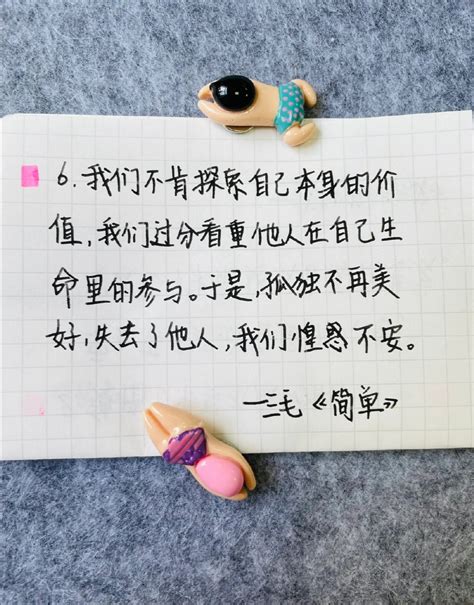 6.我们不肯探索自己本身的价
值,我们过分看重他人在自己生
命里的参与。于是,孤独不再美
好,失去了他人,我们惶恐不安。
—三毛《简单》